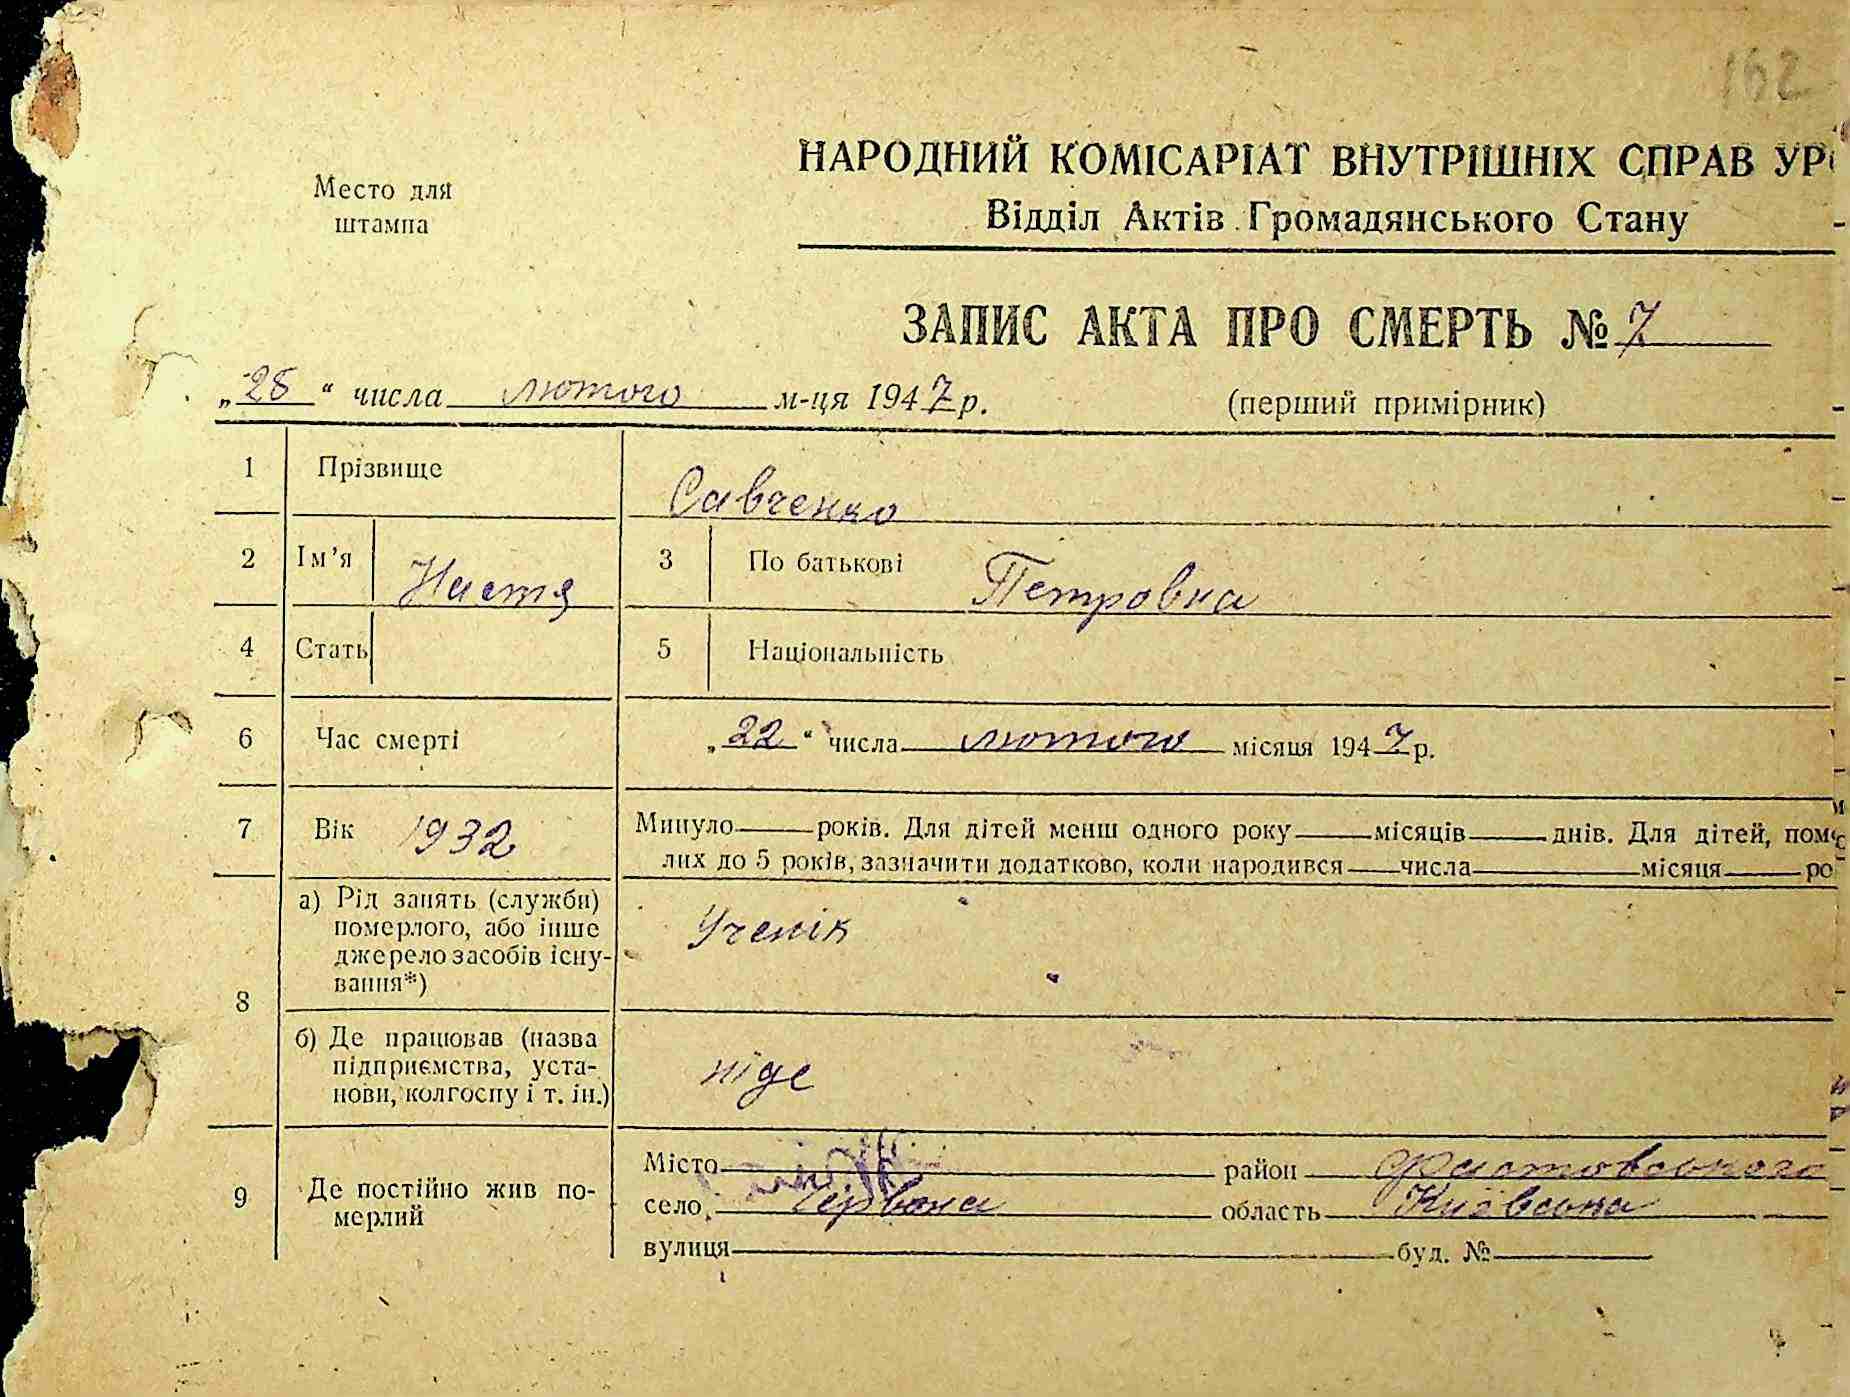 162
НАРОДНИЙ КОМІСАРІАТ ВНУТРІШНІХ СПРАВ УР
Место для
штампа
Відділ Актів Громадянського Стану
ЗАПИС АКТА ПРО СМЕРТЬ № 7
„28“ числа лютого м-ця 1947 р. (перший примірник)
1 Прізвище Савченко
2 Ім'я Настя 3 По батькові Петровна
4 Стать 5 Національність
6 Час смерті „22“ числа лютого місяця 1947 р.
7 Вік 1932 Минуло років. Для дітей менш одного року місяців днів. Для дітей, пом
лих до 5 років, зазначити додатково, коли народився числа місяця ро
8
а) Рід занять (служби)
померлого, або інше
джерело засобів існу-
вання*)
Ученік
б) Де працював (назва
підприємства, уста-
нови, колгоспу і т. ін.)
ніде
9 Де постійно жив по-
мерлий
Місто район Фастовського
село Червона область Київська
вулиця буд. №